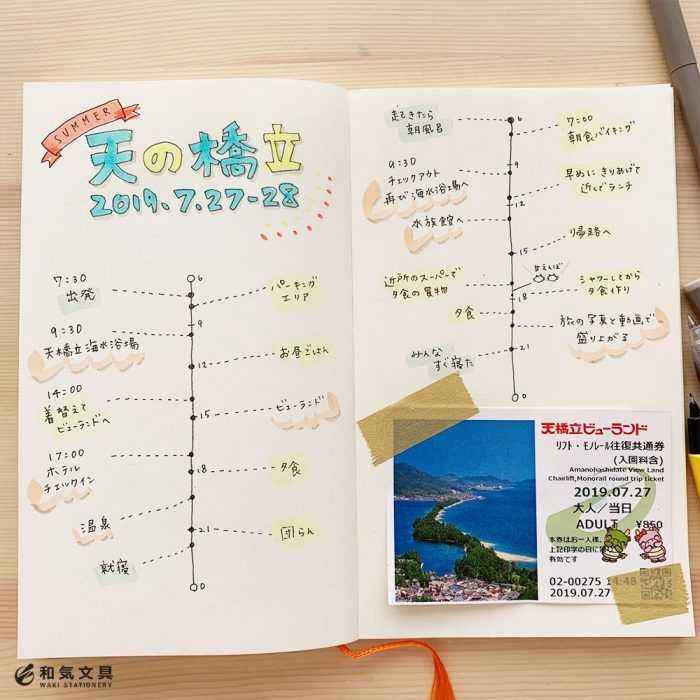 SUMMER
天の橋立
2019.7.27-28
7:30
出発
9:30
天橋立海水浴場
14:00
着替えて
ビューランドへ
17:00
ホテル
チェックイン
温泉
就寝
6
9
12
15
18
21
0
パーキング
エリア
お昼ごはん
ビューランド
夕食
団らん
起きてきたら
朝風呂
9:30
チェックアウト
再び海水浴場へ
水族館へ
近所のスーパーで
夕食の買物
夕食
みんな
すぐ寝た
6
9
12
15
18
21
0
7:00
朝食バイキング
早めにきりあげて
近くでランチ
帰路へ
甘えんぼ
シャワーしてから
夕食作り
旅の写真と動画で
盛り上がる
天橋立ビューランド
リフト・モノレール往復共通券
(入園料含)
Amanohashidate View Land
Chairlift,Monorail round trip ticket
2019.07.27
大人／当日
ADULT ¥850
本券はお一人様、
上記印字の日に
有効です
02-00275 14:48
2019.07.27
和気文具
WAKI STATIONERY